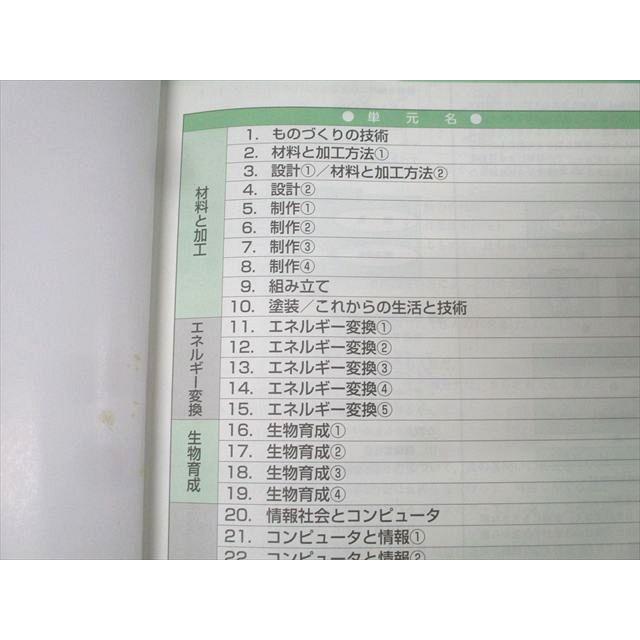 ● 単 元 名 ●
材料と加工
1. ものづくりの技術
2. 材料と加工方法①
3. 設計①／材料と加工方法②
4. 設計②
5. 制作①
6. 制作②
7. 制作③
8. 制作④
9. 組み立て
10. 塗装／これからの生活と技術
エネルギー変換
11. エネルギー変換①
12. エネルギー変換②
13. エネルギー変換③
14. エネルギー変換④
15. エネルギー変換⑤
生物育成
16. 生物育成①
17. 生物育成②
18. 生物育成③
19. 生物育成④
20. 情報社会とコンピュータ
21. コンピュータと情報①
22. コンピュータと情報②